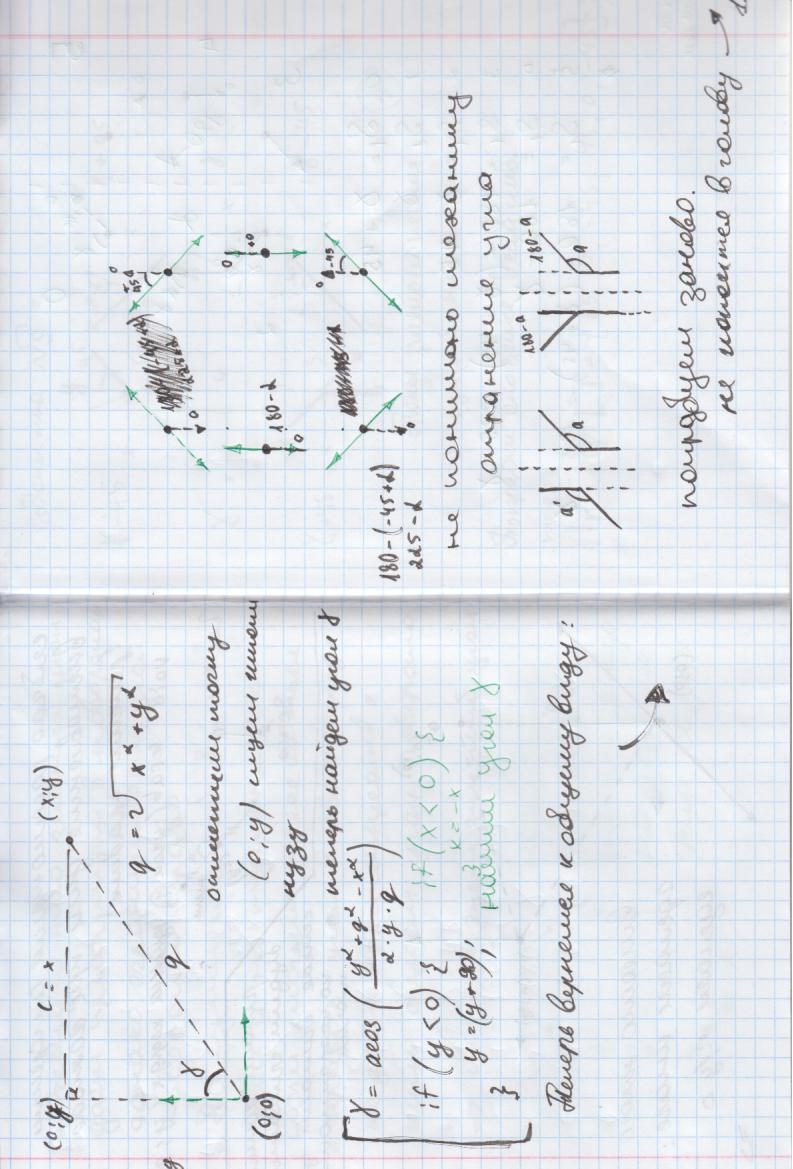 (0;y)
c = x
(x;y)
γ
q
(0;0)
q = √x² + y²
отметим точку
(0;y) ищем
нузу
теперь найдем угол γ
γ = acos ( y² + q² - x² / 2 · y · q )
if (y < 0) {
y = (y + 90);
}
if (x < 0) {
x = -x
}
угол γ
Теперь вернемся к общему виду:
0
45
0
180-2
0
0
+0
0
0
-45
180-(-45+2)
225-2
не понимаю механику
отражения угла
a'
a
180-a
180-a
a
попробуем заново.
не в голову